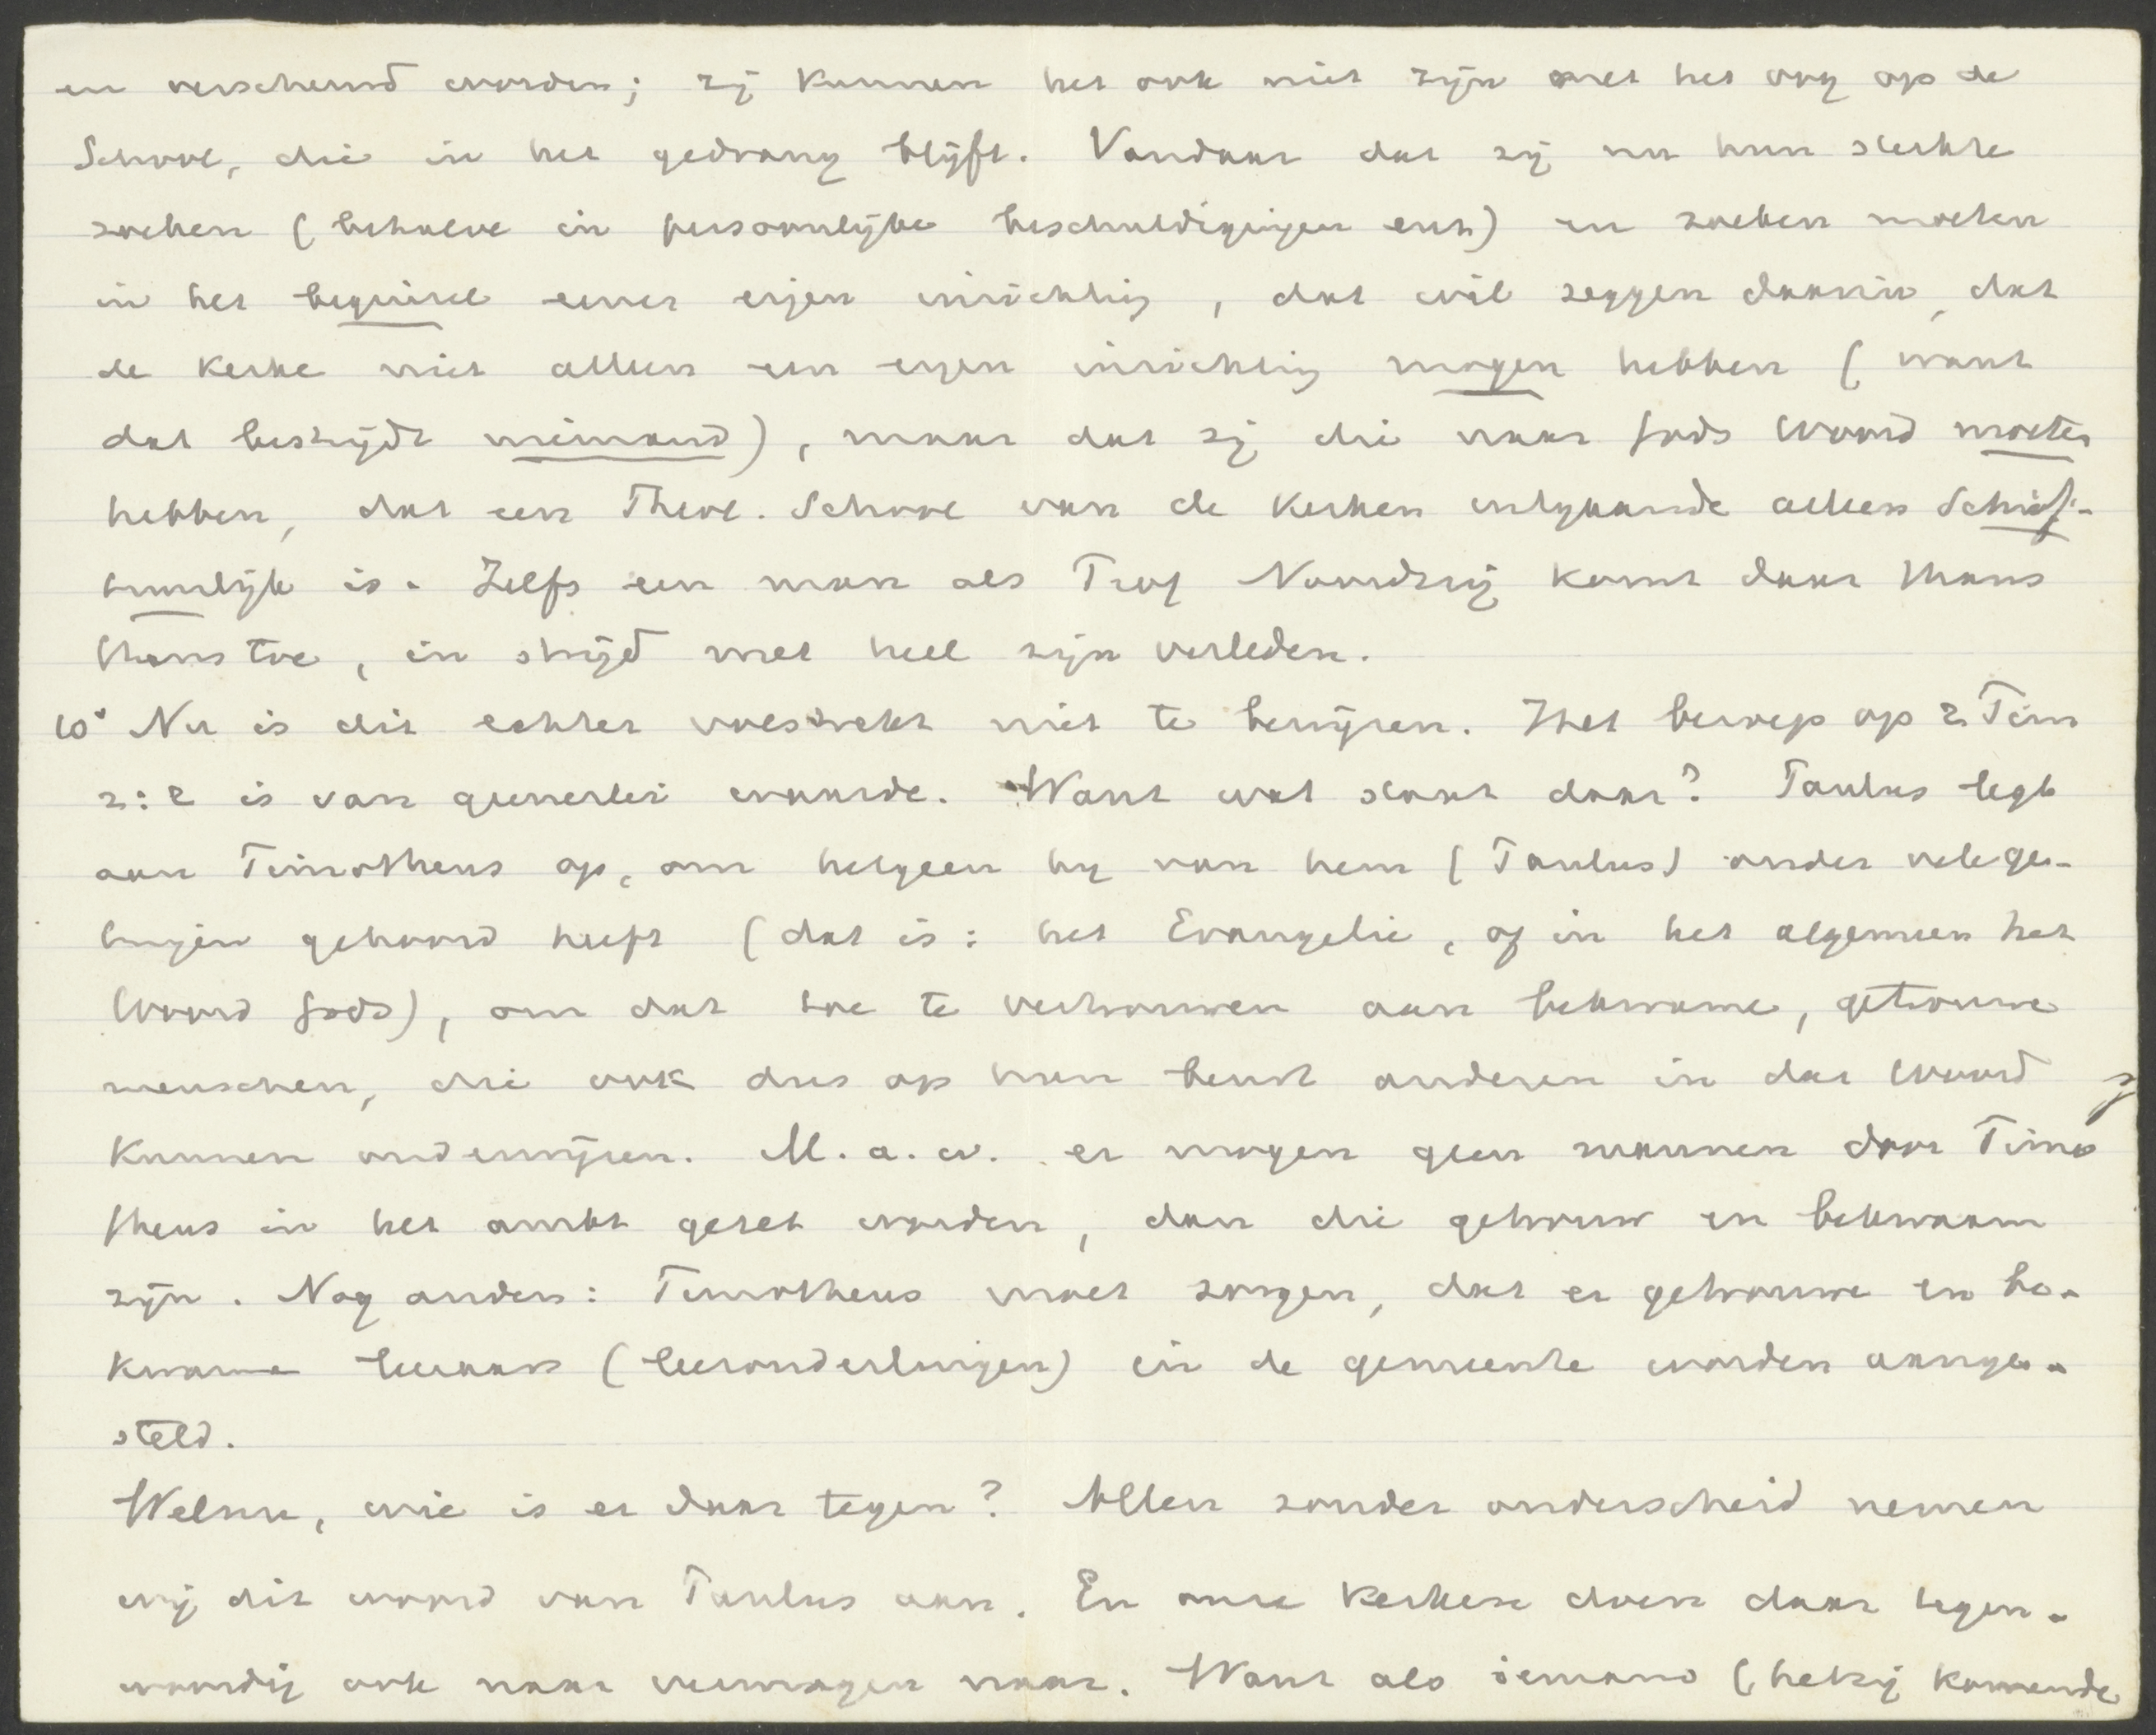 en verscheurd worden; zij kunnen het ook niet zijn met het oog op de
School, die in het gedrang blijft. Vandaar dat zij nu hun sterkte
zoeken (behalve in persoonlijke beschuldigingen enz) en zoeken moeten
in het beginsel eener eigen inrichting, dat wil zeggen daarin, dat
de Kerke niet alleen een eigen inrichting mogen hebben (want
dat bestrijdt niemand), maar dat zij die naar Gods Woord moeten
hebben, dat een Theol. School van de Kerken uitgaande alleen Schrif-
tuurlijk is. Zelfs een man als Prof Noordzij komt daar thans
thans toe, in strijd met heel zijn verleden.
10° Nu is dit echter volstrekt niet te bewijzen. Het beroep op 2 Tim
2:2 is van geenerlei waarde. Want wat staat daar? Paulus legt
aan Timotheus op, om hetgeen hij van hem (Paulus) onder vele ge-
tuigen gehoord heeft (dat is: het Evangelie, of in het algemeen het
Woord Gods), om dat toe te vertrouwen aan bekwame, getrouwe
menschen, die ook dus op hun beurt anderen in dat Woord
kunnen onderwijzen. M.a.w. er mogen geen mannen door Timo
theus in het ambt gezet worden, dan die getrouw en bekwaam
zijn. Nog anders: Timotheus moet zorgen, dat er getrouwe en be-
kwame leeraars (leerouderlingen) in de gemeente worden aange-
steld.
Welnu, wie is er daar tegen? Allen zonder onderscheid nemen
wij dit woord van Paulus aan. En onze Kerken doen daar tegen-
woordig ook naar vermogen naar. Want als iemand (hetzij komende